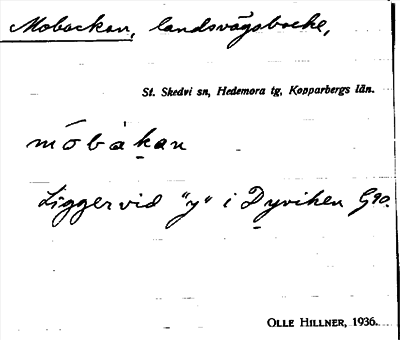 Mobackan, landsvägsbacke,
St. Skedvi sn, Hedemora tg, Kopparbergs län.
mōbàk̠an
Ligger vid "y" i Dyviken G90.
OLLE HILLNER, 1936.